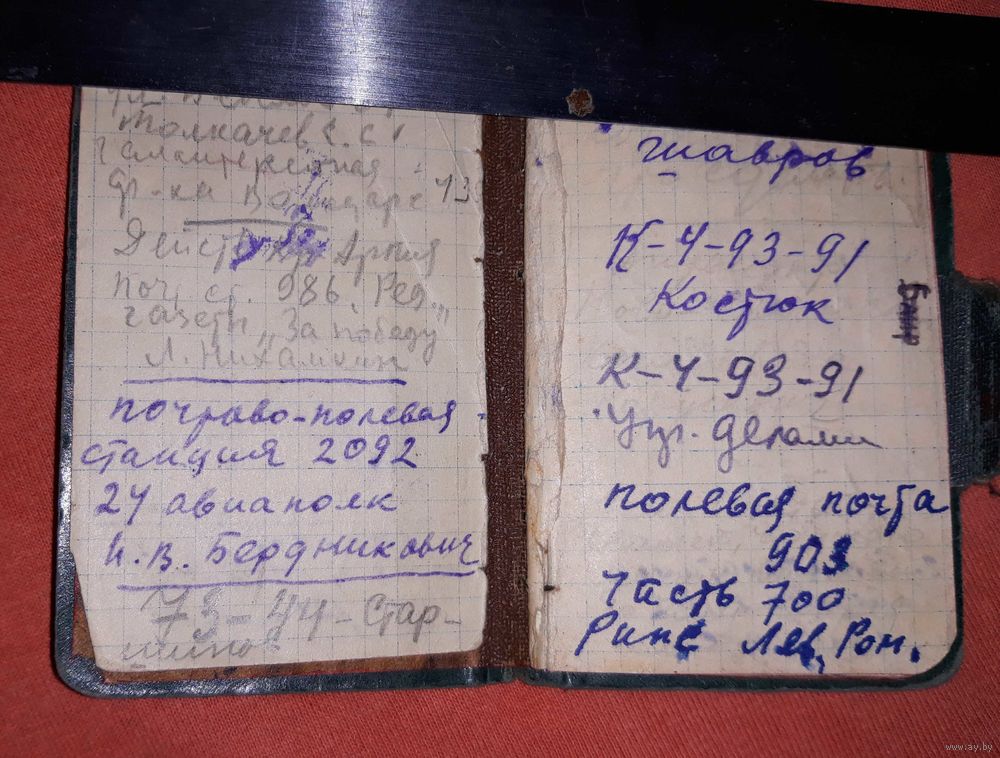 Толкачев С. С.
галантерейная
ф-ка
Действ. Армия
поч. ст. 986. Ред.
газеты „За победу"
Л. Нихамкин
почтово-полевая
станция 2092
24 авиаполк
И. В. Бердникович
73-44-Стар-
шавров
К-4-93-91
Костюк
К-4-93-91
Упр. делами
полевая почта
903
Часть 700
Рипс Лев. Ром.
www.ay.by